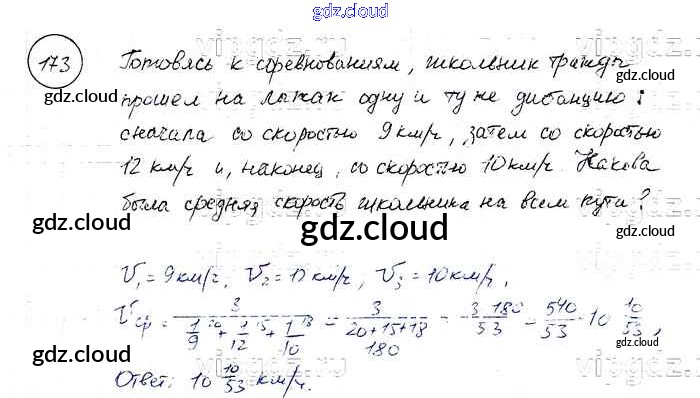 gdz.cloud
173 Готовясь к соревнованиям, школьник трижды
прошел на лыжах одну и ту же дистанцию:
сначала со скоростью 9 км/ч, затем со скоростью
12 км/ч и, наконец, со скоростью 10 км/ч. Какова
была средняя скорость школьника на всем пути?
gdz.cloud
V₁ = 9 км/ч, V₂ = 12 км/ч, V₃ = 10 км/ч,
Vср = 3/(1/9 + 1/12 + 1/10) = 3/((20+15+18)/180) = 3·180/53 = 540/53 = 10 10/53,
Ответ: 10 10/53 км/ч.